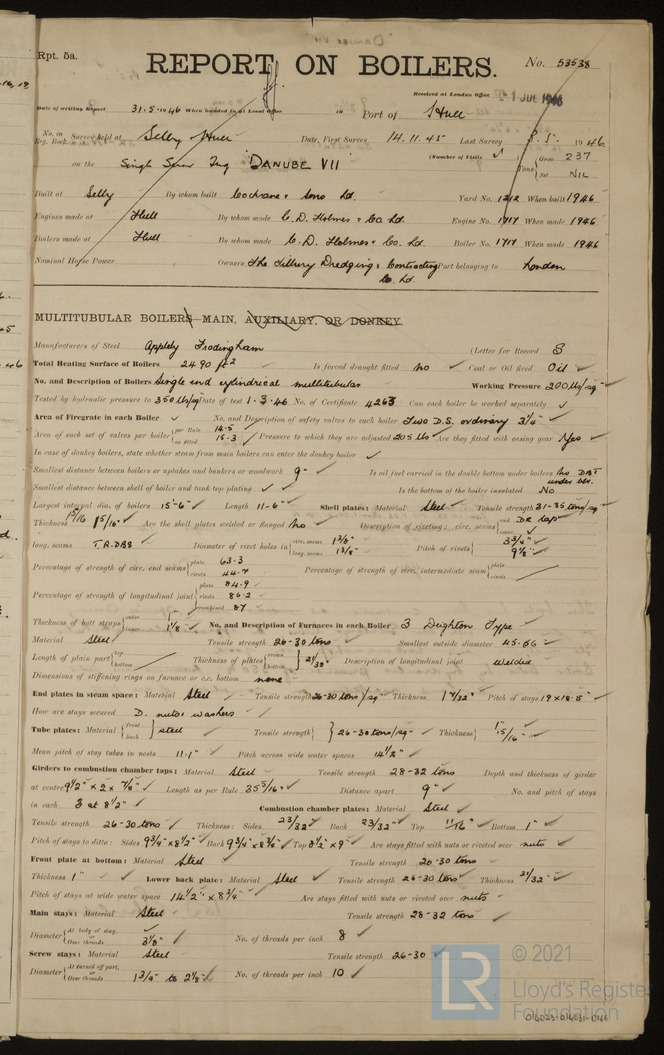 Rpt. 5a.
REPORT ON BOILERS.
No. 53538
Received at London Office 1 JUL 1946
Date of writing Report 31.5.1946 When handed in at Local Office 19 Port of Hull
No. in Reg. Book. Survey held at Selby Hull Date, First Survey 14.11.45 Last Survey 8.5. 1946
(Number of Visits ) Gross 237
on the Single Screw Tug "DANUBE VII" Tons Net NIL
Built at Selby By whom built Cochrane & Sons Ld. Yard No. 1312 When built 1946
Engines made at Hull By whom made C.D. Holmes & Co. Ld. Engine No. 1717 When made 1946
Boilers made at Hull By whom made C.D. Holmes & Co. Ld. Boiler No. 1717 When made 1946
Nominal Horse Power Owners The Tilbury Dredging & Contracting Co. Ld. Port belonging to London
MULTITUBULAR BOILERS MAIN, AUXILIARY, OR DONKEY.
Manufacturers of Steel Appleby Frodingham (Letter for Record S
Total Heating Surface of Boilers 2490 ft² Is forced draught fitted no Coal or Oil fired Oil
No. and Description of Boilers Single end cylindrical multitubular Working Pressure 200 lbs/sq"
Tested by hydraulic pressure to 350 lbs/sq" Date of test 1.3.46 No. of Certificate 4263 Can each boiler be worked separately ✓
Area of Firegrate in each Boiler ✓ No. and Description of safety valves to each boiler Two D.S. ordinary 3¼"
Area of each set of valves per boiler per Rule 14.5 as fitted 15.3 Pressure to which they are adjusted 205 lbs Are they fitted with easing gear Yes
In case of donkey boilers, state whether steam from main boilers can enter the donkey boiler ✓
Smallest distance between boilers or uptakes and bunkers or woodwork 9" Is oil fuel carried in the double bottom under boilers No DBT under blr.
Smallest distance between shell of boiler and tank top plating ✓ Is the bottom of the boiler insulated No
Largest internal dia. of boilers 15'-6" Length 11'-6" Shell plates: Material Steel Tensile strength 31-35 tons/sq"
Thickness 1 5/16" Are the shell plates welded or flanged No Description of riveting: circ. seams end DR lap inter. ✓
long. seams T.R.DBS Diameter of rivet holes in circ. seams 1 3/8" long. seams 1 3/8" Pitch of rivets 3 3/4" 9 7/8"
Percentage of strength of circ. end seams plate 63.3 rivets 44.7 Percentage of strength of circ. intermediate seam plate rivets
Percentage of strength of longitudinal joint plate 84.9 rivets 86.2 combined 87
Thickness of butt straps outer 1" inner 1 1/8" No. and Description of Furnaces in each Boiler 3 Deighton Type
Material Steel Tensile strength 26-30 tons Smallest outside diameter 45.66
Length of plain part top bottom Thickness of plates crown bottom 21/32" Description of longitudinal joint welded
Dimensions of stiffening rings on furnace or c.c. bottom none
End plates in steam space: Material Steel Tensile strength 26-30 tons/sq" Thickness Pitch of stays 19" x 18.5"
How are stays secured D. nuts & washers
Tube plates: Material front back steel Tensile strength 26-30 tons/sq" Thickness 15/16"
Mean pitch of stay tubes in nests 11.1" Pitch across wide water spaces 14½"
Girders to combustion chamber tops: Material Steel Tensile strength 28-32 tons Depth and thickness of girder
at centre 9½" x 2 x 7/8" Length as per Rule 35 5/16" Distance apart 9" No. and pitch of stays
in each 3 at 8½" Combustion chamber plates: Material Steel
Tensile strength 26-30 tons Thickness: Sides 23/32" Back 23/32" Top 11/16 Bottom 1"
Pitch of stays to ditto: Sides 9¾" x 8½" Back 9¾" x 8¾" Top 8½" x 9" Are stays fitted with nuts or riveted over nuts
Front plate at bottom: Material Steel Tensile strength 26-30 tons
Thickness 1" Lower back plate: Material Steel Tensile strength 26-30 tons Thickness 31/32"
Pitch of stays at wide water space 14½" x 8¾" Are stays fitted with nuts or riveted over nuts
Main stays: Material Steel Tensile strength 28-32 tons
Diameter At body of stay, or Over threads 3 1/8" No. of threads per inch 8
Screw stays: Material Steel Tensile strength 26-30
Diameter At turned off part, or Over threads 1¾" to 2 1/8" No. of threads per inch 10
LR © 2021 Lloyd's Register Foundation